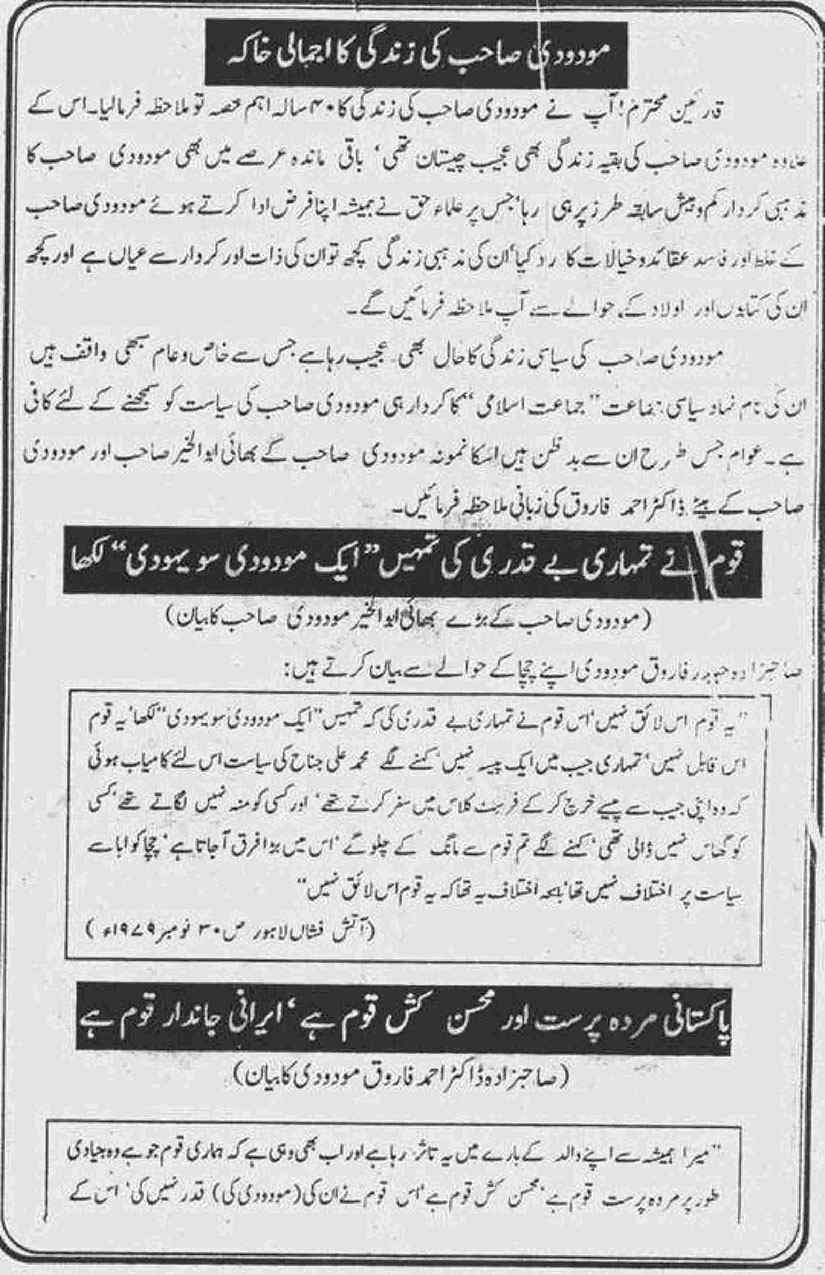 مودودی صاحب کی زندگی کا اجمالی خاکہ
قارئین محترم! آپ نے مودودی صاحب کی زندگی کا ۴۰ سالہ اہم حصہ تو ملاحظہ فرمالیا۔ اس کے
علاوہ مودودی صاحب کی بقیہ زندگی بھی عجیب چیستان تھی، باقی ماندہ عرصے میں بھی مودودی صاحب کا
مذہبی کردار کم و بیش سابقہ طرز پر ہی رہا، جس پر علماء حق نے ہمیشہ اپنا فرض ادا کرتے ہوئے مودودی صاحب
کے غلط اور فاسد عقائد و خیالات کا رد کیا، ان کی مذہبی زندگی کچھ تو ان کی ذات اور کردار سے عیاں ہے اور کچھ
ان کی کتابوں اور اولاد کے حوالے سے آپ ملاحظہ فرمائیں گے۔
مودودی صاحب کی سیاسی زندگی کا حال بھی عجیب رہا ہے جس سے خاص و عام سبھی واقف ہیں
ان کی نام نہاد سیاسی جماعت "جماعت اسلامی" کا کردار ہی مودودی صاحب کی سیاست کو سمجھنے کے لئے کافی
ہے۔ عوام جس طرح ان سے بدظن ہیں اسکا نمونہ مودودی صاحب کے بھائی ابوالخیر صاحب اور مودودی
صاحب کے بیٹے ڈاکٹر احمد فاروق کی زبانی ملاحظہ فرمائیں۔
قوم نے تمہاری بے قدری کی تمہیں "ایک مودودی سو یہودی" لکھا
(مودودی صاحب کے بڑے بھائی ابوالخیر مودودی صاحب کا بیان)
صاحبزادہ حیدر فاروق مودودی اپنے چچا کے حوالے سے بیان کرتے ہیں:
"یہ قوم اس لائق نہیں، اس قوم نے تمہاری بے قدری کی کہ تمہیں "ایک مودودی سو یہودی" لکھا، یہ قوم
اس قابل نہیں، تمہاری جیب میں ایک پیسہ نہیں، کہنے لگے محمد علی جناح کی سیاست اس لئے کامیاب ہوئی
کہ وہ اپنی جیب سے پیسے خرچ کر کے فرسٹ کلاس میں سفر کرتے تھے، اور کسی کو منہ نہیں لگاتے تھے، کسی
کو گھاس نہیں ڈالی تھی، کہنے لگے تم قوم سے مانگ کے چلو گے، اس میں بڑا فرق آجاتا ہے، چچا کو ابا سے
سیاست پر اختلاف نہیں تھا، بلکہ اختلاف یہ تھا کہ یہ قوم اس لائق نہیں"
(آتش فشاں لاہور ص ۳۰ نومبر ۱۹۷۹ء)
پاکستانی مردہ پرست اور محسن کش قوم ہے، ایرانی جاندار قوم ہے
(صاحبزادہ ڈاکٹر احمد فاروق مودودی کا بیان)
"میرا ہمیشہ سے اپنے والد کے بارے میں یہ تاثر رہا ہے اور اب بھی وہی ہے کہ ہماری قوم جو ہے وہ بنیادی
طور پر مردہ پرست قوم ہے، محسن کش قوم ہے، اس قوم نے ان کی (مودودی کی) قدر نہیں کی، اس کے